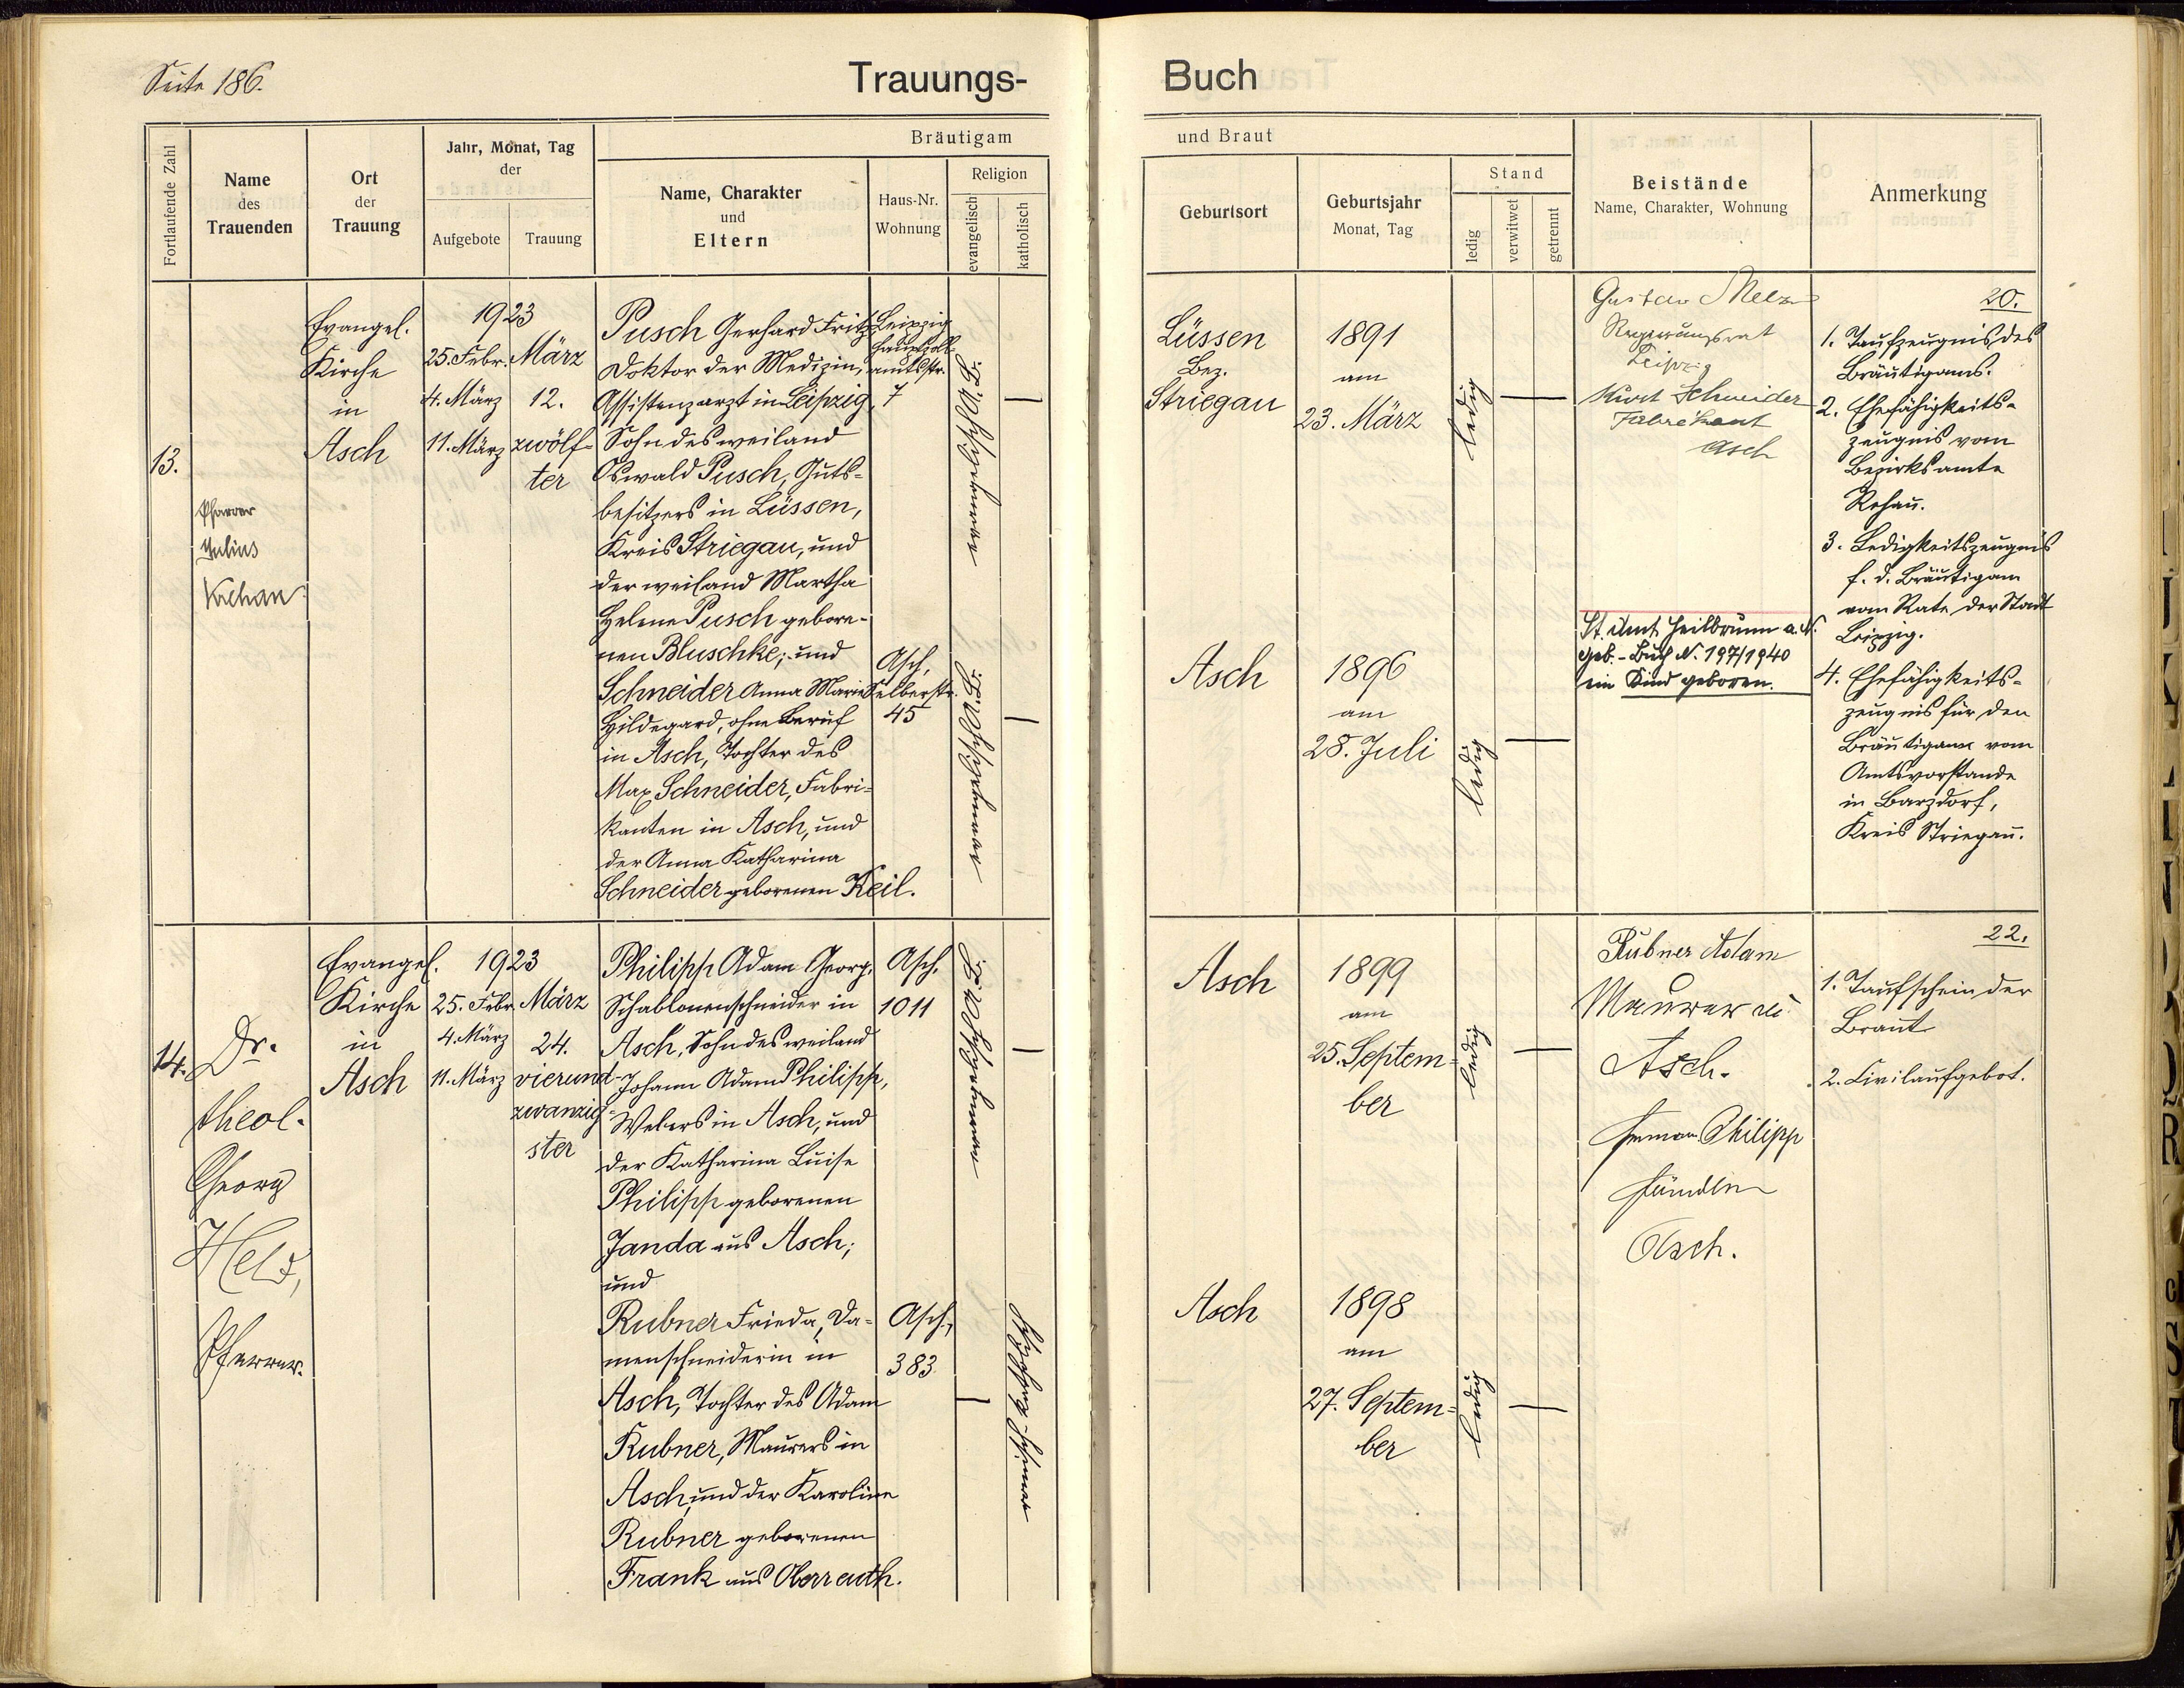 Seite 186.
Trauungs-
Fortlaufende Zahl
Name
des
Trauenden
Ort
der
Trauung
Jahr, Monat, Tag
der
Aufgebote
Trauung
Bräutigam
Name, Charakter
und
Eltern
Haus-Nr.
Wohnung
Religion
evangelisch
katholisch
13.
Pfarrer
Julius
Evangel.
Kirche
in
Asch
1923
25. Febr.
4. März
11. März
März
12.
zwölf-
ter
Pusch Gerhard Fritz
Doktor der Medizin,
Assistenzarzt in Leipzig,
Sohn des weiland
Oswald Pusch, Guts-
besitzers in Lüssen,
Kreis Striegau, und
der weiland Martha
Helene Pusch gebore-
nen Bluschke; und
Schneider Anna Marie
Hildegard, ohne Beruf
in Asch, Tochter des
Max Schneider, Fabri-
kanten in Asch, und
der Anna Katharina
Schneider geborenen Keil.
Leipzig
Hauptzoll-
amtsstr.
7
Asch,
Selberstr.
45
14.
Dr.
theol.
Georg
Held,
Pfarrer.
Evangel.
Kirche
in
Asch
1923
25. Febr.
4. März
11. März
März
24.
vierund-
zwanzig-
ster
Philipp Adam Georg,
Schablonenschneider in
Asch, Sohn des weiland
Johann Adam Philipp,
Webers in Asch, und
der Katharina Luise
Philipp geborenen
Janda aus Asch;
und
Rubner Frieda, Da-
menschneiderin in
Asch, Tochter des Adam
Rubner, Maurers in
Asch, und der Karoline
Rubner geborenen
Frank aus Oberreuth.
Asch,
1011
Asch,
383
Buch
und Braut
Geburtsort
Geburtsjahr
Monat, Tag
Stand
ledig
verwitwet
getrennt
Beistände
Name, Charakter, Wohnung
Anmerkung
Lüssen
Bez.
Striegau
1891
am
23. März
ledig
Gustav
Regierungsrat
Leipzig
Kurt Schneider
Fabrikant
Asch
20.
1. Taufzeugnis des
Bräutigams.
2. Ehefähigkeits-
zeugnis vom
Bezirksamte
Rehau.
3. Ledigkeitszeugnis
f. d. Bräutigam
vom Rate der Stadt
Leipzig.
4. Ehefähigkeits-
zeugnis für den
Bräutigam vom
Amtsvorstande
in Barzdorf,
Kreis Striegau.
Asch
1896
am
28. Juli
ledig
St. Amt Heilbrunn a. N.
Geb.-Buch N. 197/1940
ein Kind geboren.
Asch
1899
am
25. Septem-
ber
ledig
Rubner Adam
Maurer in
Asch.
Philipp
Asch.
22.
1. Taufschein der
Braut
2. Civilaufgebot.
Asch
1898
am
27. Septem-
ber
ledig